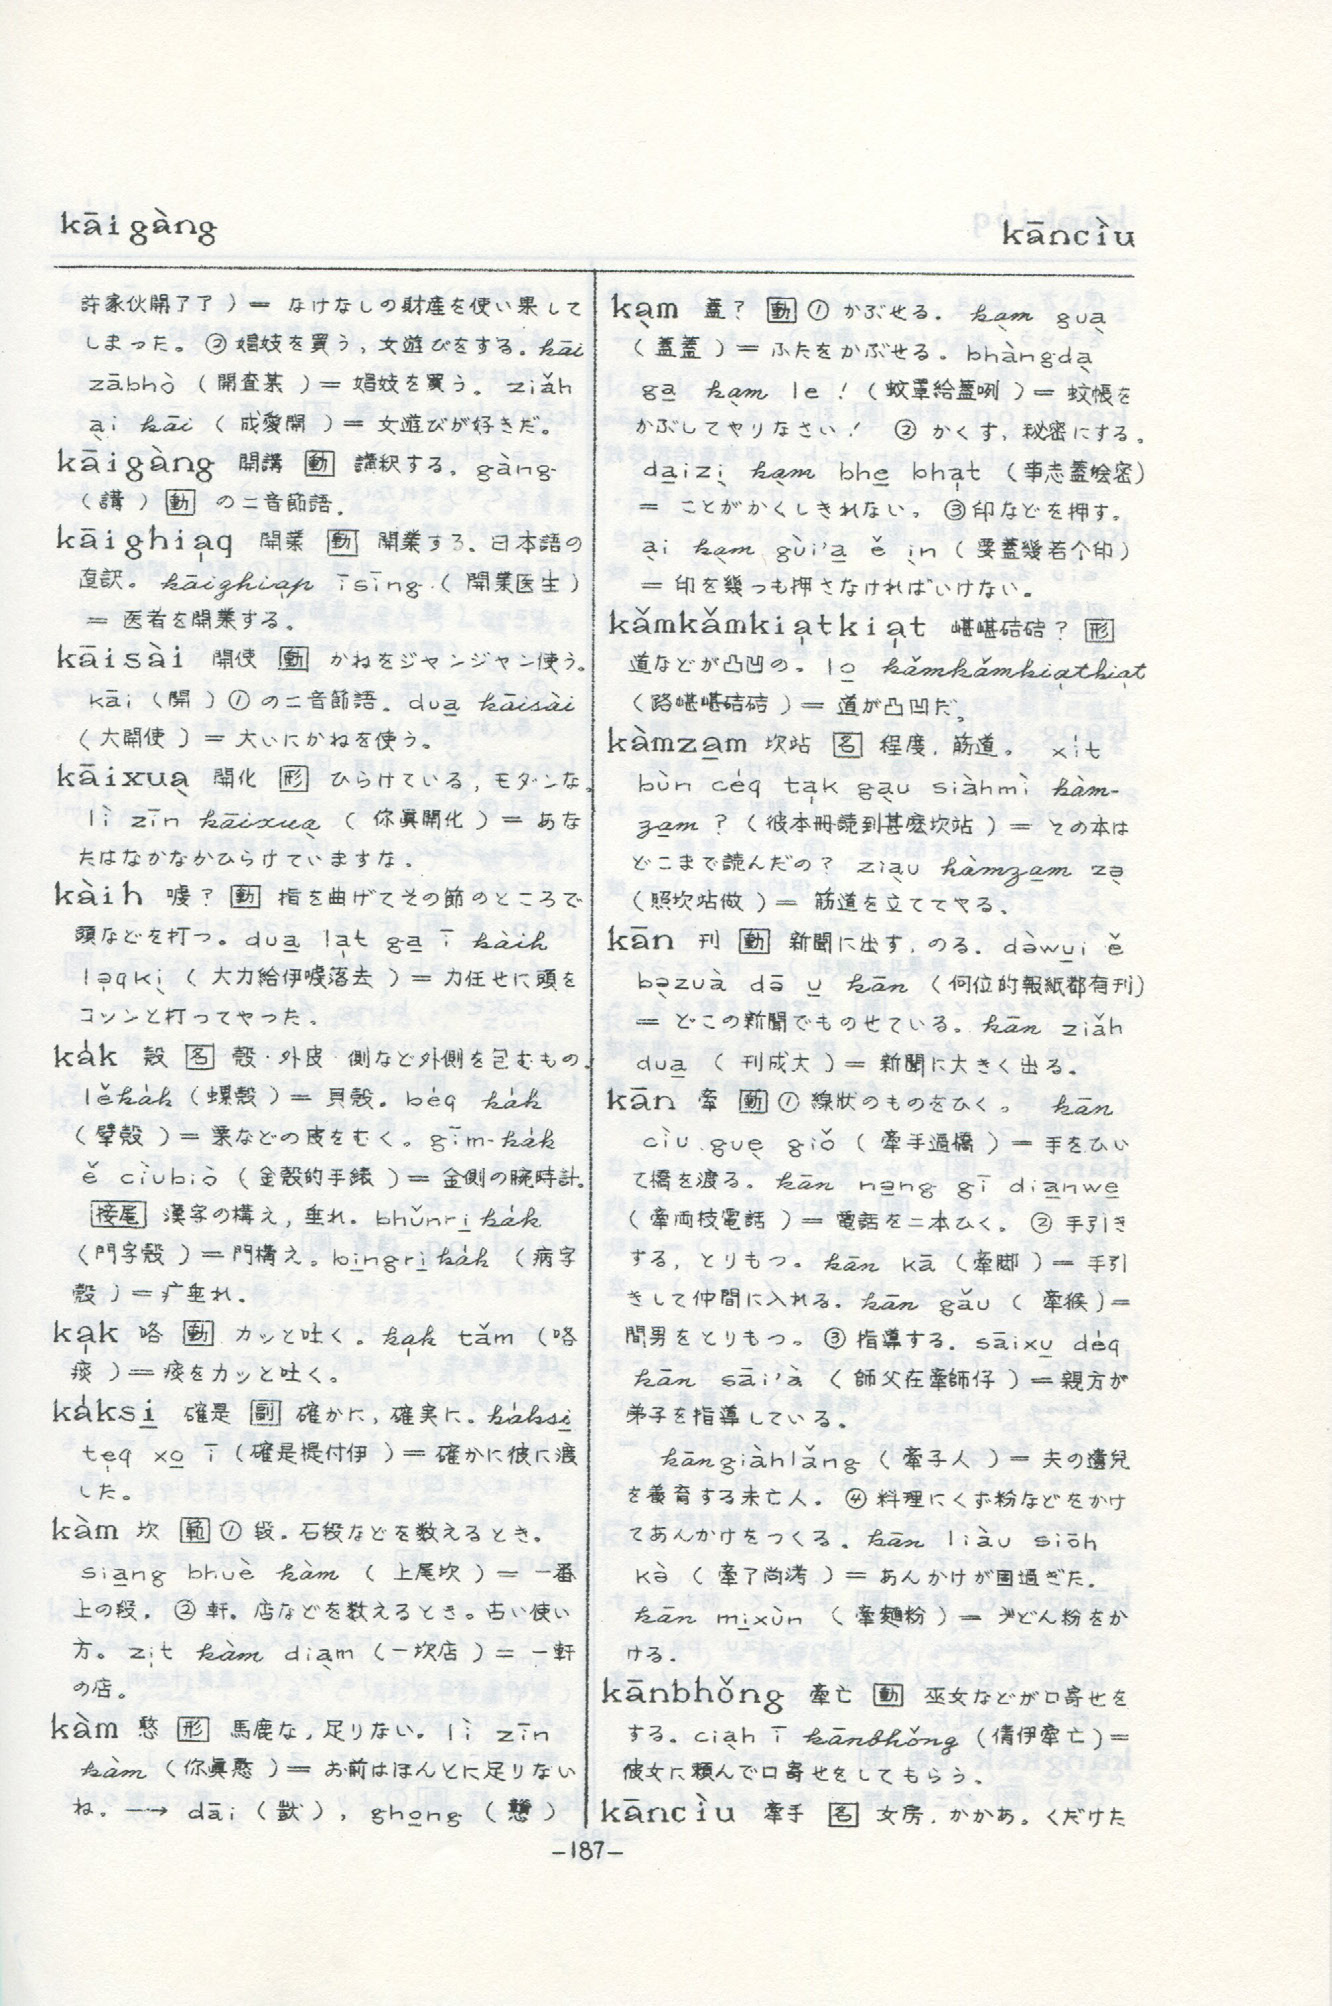 kāigàng
kānciu̍
許家伙開了了)= なけなしの財産を使い果して
しまった。②娼妓を買う,女遊びをする. kāi
zābhò (開査某)= 娼妓を買う。 ziǎh
ai̩ kāi (成愛開)= 女遊びが好きだ。
kāigàng 開講 動 講釈する。gàng
(講)動 の二音節語.
kāighia̍q 開業 動 開業する、日本語の
直訳。 kāighia̍p īsīng (開業医生)
= 医者を開業する。
kāisài 開使 動 かねをジャンジャン使う。
kāi(開)①の二音節語。dua̱ kāisài
(大開使)= 大いにかねを使う。
kāixua̩ 開化 形 ひらけている,モダンな。
lì zīn kāixua̩ (你眞開化)= あな
たはなかなかひらけていますな。
kàih 嘘? 動 指を曲げてその節のところで
頭などを打つ。dua̱ la̍t ga̱ ī kàih
lə̍qki̩ (大力給伊嘘落去)= 力任せに頭を
コツンと打ってやった、
kák 殻 名 殻・外皮・側など外側を包むもの.
lěkák(螺殻)= 貝殻。béq kák
(擘殻)= 栗などの皮をむく。gīm-kák
ě cìubiò (金殻的手錶)= 金側の腕時計.
接尾 漢字の構え,垂れ。bhǔnri̱kák
(門字殻)= 門構え。bi̱ngri̱kák (病字
殻)= 疒垂れ.
ka̍k 咯 動 カッと吐く。ka̍k tǎm (咯
痰)= 痰をカッと吐く。
káksi̱ 確是 副 確かに,確実に。káksi̱
te̍q xo̱ ī(確是提付伊)= 確かに彼に渡
した。
kàm 坎 範 ①段.石段などを数えるとき.
sia̱ng bhuè kàm (上尾坎)= 一番
上の段. ②軒。店などを数えるとき。古い使い
方。zi̍t kàm dia̩m (一坎店)= 一軒
の店。
kàm 憨 形 馬鹿な,足りない. lì zīn
kàm (你眞憨)= お前はほんとに足りない
ね. ─→ dāi (獃), gho̱ng (戇)
ka̩m 蓋? 動 ①かぶせる. ka̩m gua̩
(蓋蓋)= ふたをかぶせる. bhàngda̩
ga̱ ka̩m le ! (蚊罩給蓋咧)= 蚊帳を
かぶしてやりなさい! ②かくす,秘密にする.
da̱izi̩ ka̩m bhe̱ bha̍t (事志蓋𣍐密)
= ことがかくしきれない。③印などを押す。
ai̩ ka̩m gùi'a̩ ě i̩n (要蓋幾若个印)
= 印を幾つも押さなければいけない。
kǎmkǎmkia̍tkia̍t 嵁嵁硈硈? 形
道などが凸凹の。lo̱ kǎmkǎmkia̍tkia̍t
(路嵁嵁硈硈)= 道が凸凹だ。
kàmza̱m 坎站 名 程度.筋道。 xít
bùn céq ta̍k ga̩u siàhmì kàm-
za̱m ?(彼本冊読到甚麼坎站)= その本は
どこまで読んだの? zia̩u kàmza̱m zə̩
(照坎站做)= 筋道を立ててやる、
kān 刊 動 新聞に出す,のる. dǎwu̱i ě
bə̩zuà dā u̱ kān (何位的報紙都有刊)
= どこの新聞でものせている。kān ziǎh
dua̱ (刊成大)= 新聞に大きく出る。
kān 牽 動 ①線状のものをひく。 kān
ciù gue̩ giǒ (牽手過橋)= 手をひい
て橋を渡る。kān na̱ng gī dia̱nwe̱
(牽両枝電話)= 電話を二本ひく。②手引き
する,とりもつ。kān kā(牽脚)= 手引
きして仲間に入れる. kān gǎu (牽猴)=
間男をとりもつ。③指導する. sāixu̱ déq
kān sāi'à (師父在牽師仔)= 親方が
弟子を指導している。
kāngiàhlǎng (牽子人)= 夫の遺児
を養育する未亡人。④料理にくず粉などをかけ
てあんかけをつくる. kān liàu siōh
kò (牽了尚洘)= あんかけが固過ぎた.
kān mi̱xùn (牽麺粉)= うどん粉をか
ける.
kānbhǒng 牽亡 動 巫女などが口寄せを
する. cia̩h ī kānbhǒng (倩伊牽亡)=
彼女に頼んで口寄せをしてもらう。
kānciù 牽手 名 女房.かかあ。くだけた
—187—